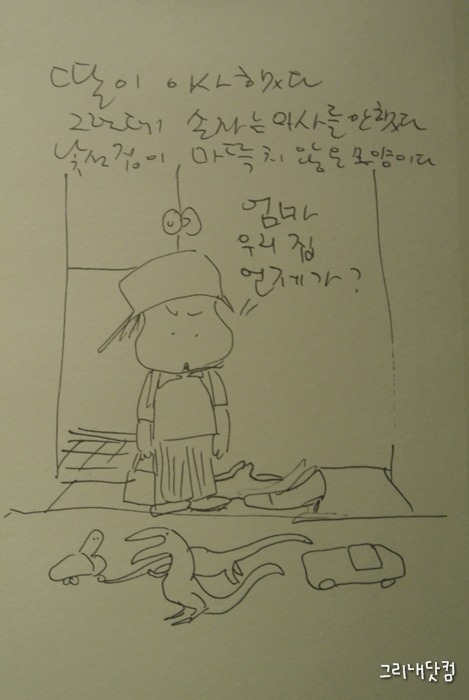 딸이 이사했다
그런데 손자는 이사를 안했다
낯선 집이 마뜩치 않은 모양이다
엄마
우리 집
언제 가?
그리내닷컴